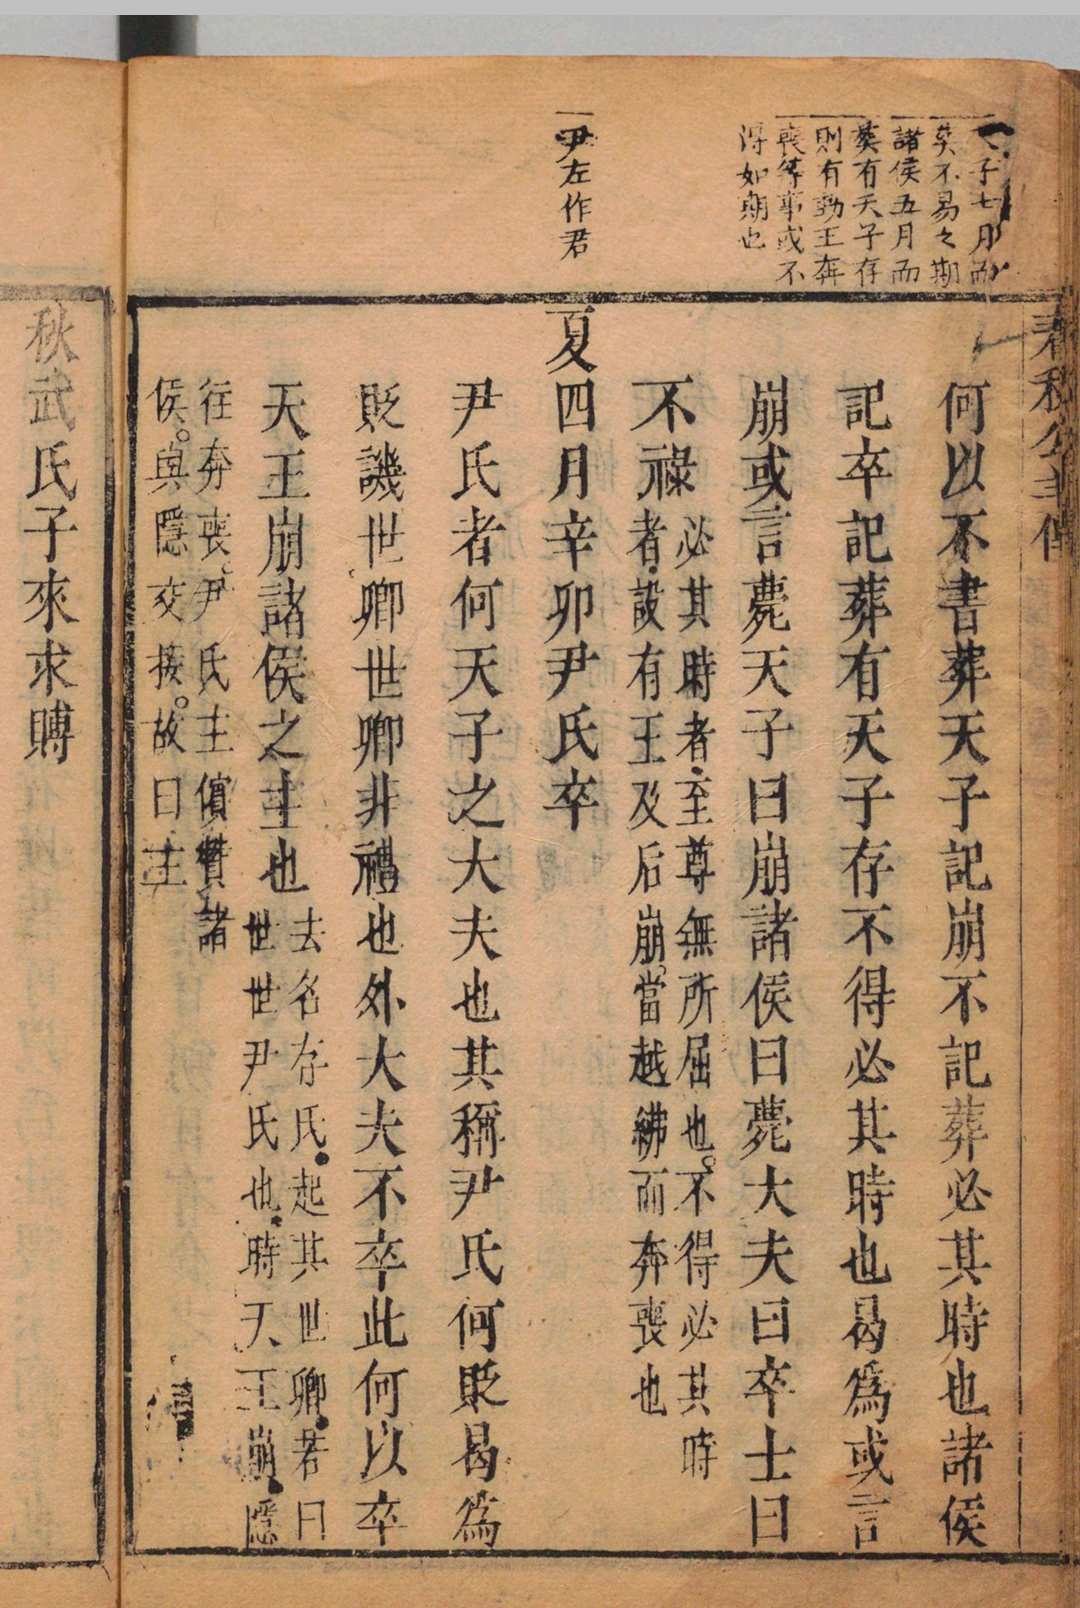 天子七月而
葬不易之期
諸侯五月而
葬有天子存
則有勤王奔
喪等事或不
得如期也
尹左作君
春秋公羊傳
何以不書葬天子記崩不記葬必其時也諸侯
記卒記葬有天子存不得必其時也曷爲或言
崩或言薨天子曰崩諸侯曰薨大夫曰卒士曰
不祿
必其時者至尊無所屈也不得必其時
者設有王及后崩當越紼而奔喪也
夏四月辛卯尹氏卒
尹氏者何天子之大夫也其稱尹氏何貶曷爲
貶譏世卿世卿非禮也外大夫不卒此何以卒
天王崩諸侯之主也
去名存氏起其世卿若曰
世世尹氏也時天王崩隱
往奔喪尹氏主儐贊諸
侯與隱交接故曰主
秋武氏子來求賻